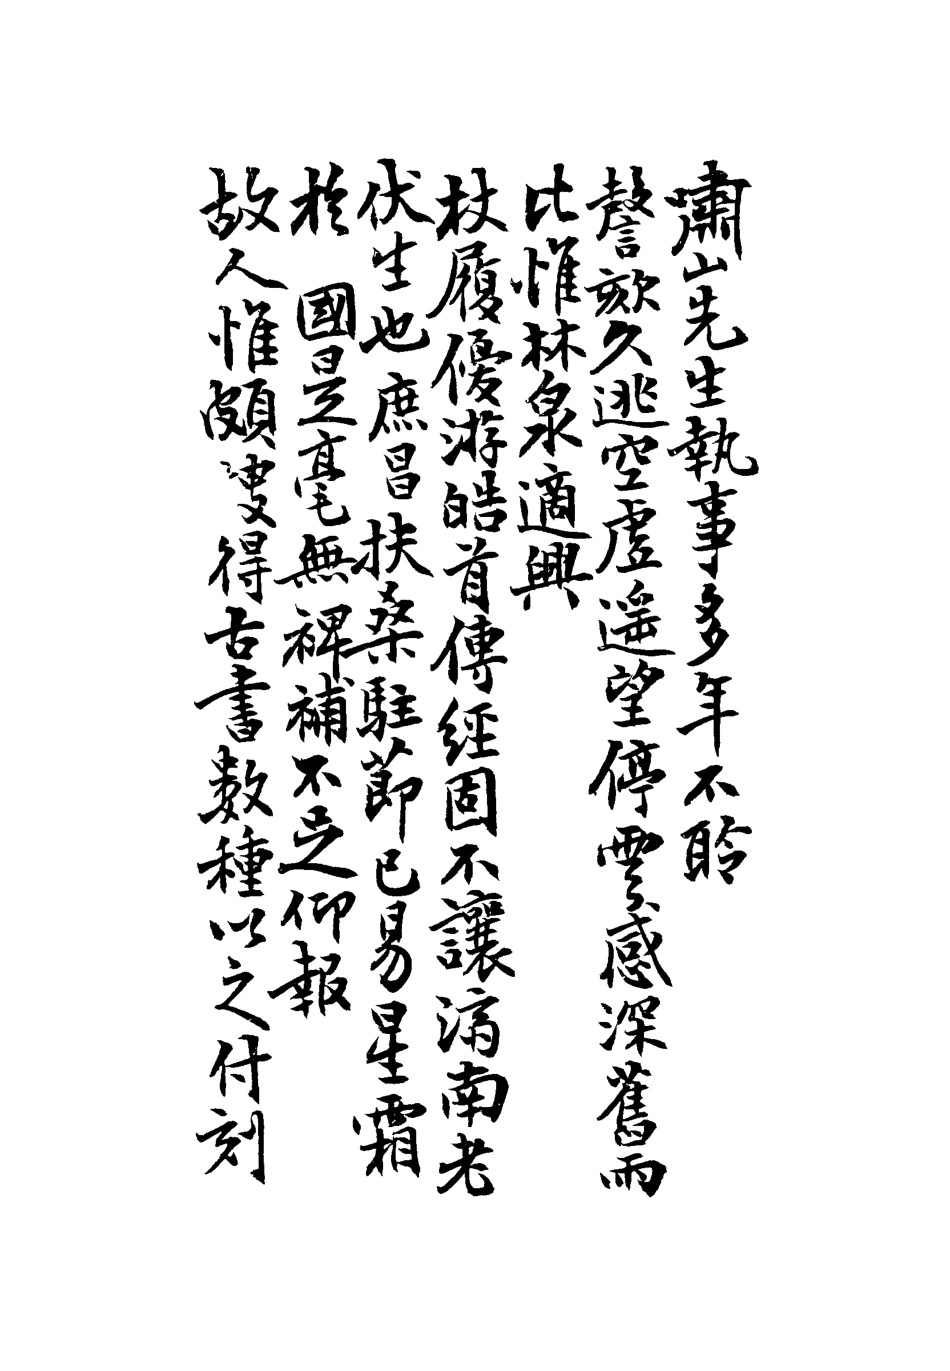 嘯山先生執事多年不聆
謦欬久逃空虛遥望停雲感深舊雨
比惟林泉適興
杖履優游皓首傳經固不讓濟南老
伏生也庶昌扶桑駐節已易星霜
於 國是毫無裨補不足仰報
故人惟頗叜得古書數種以之付刻